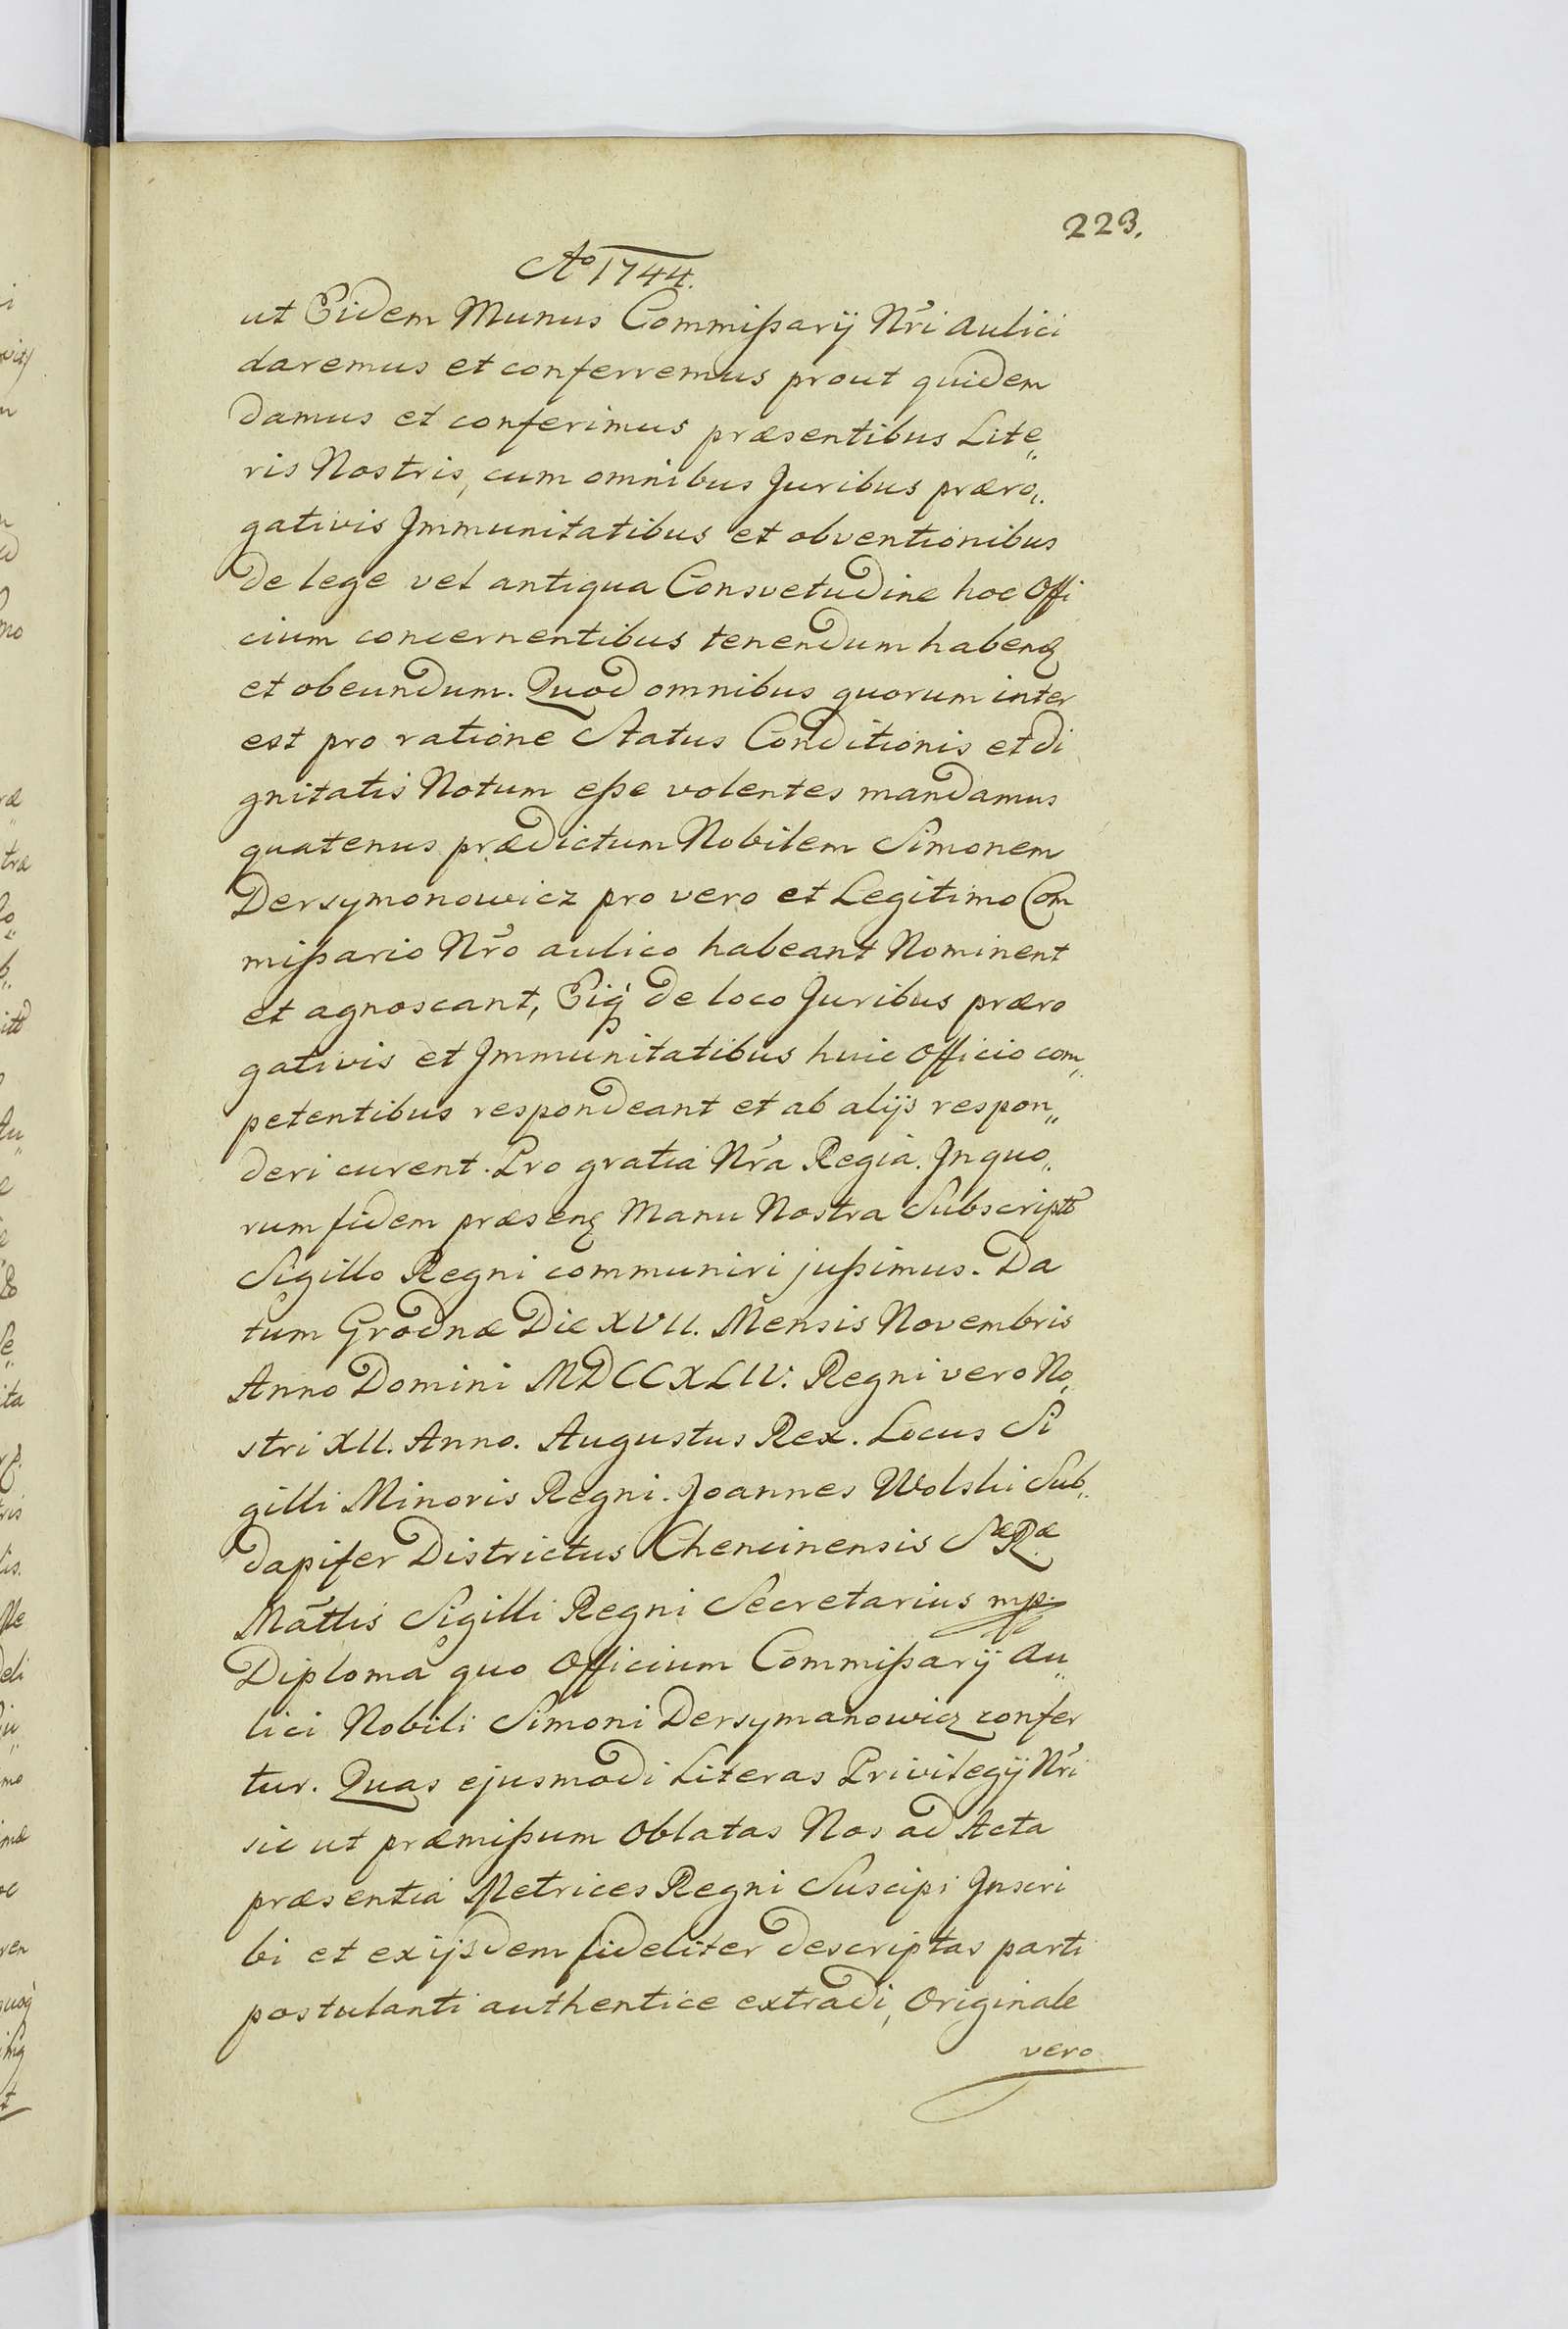 223.
Aº 1744.
ut Eidem Munus Commißarij Nri Aulici
daremus et conferremus prout quidem
damus et conferimus præsentibus Lite„
ris Nostris, cum omnibus Juribus præro„
gativis Immunitatibus et obventionibus
de lege vel antiqua Consvetudine hoc Offi
cium concernentibus tenendum habenꝗ
et obeundum. Quod omnibus quorum inter
est pro ratione Status Conditionis et di
gnitatis Notum eße volentes mandamus
quatenus prædictum Nobilem Simonem
Dersymonowicz pro vero et Legitimo Com
mißario Nro aulico habeant Nominent
et agnoscant, Eiq́ de loco Juribus præro
gativis et Immunitatibus huic Officio com„
petentibus respondeant et ab alijs respon„
deri curent. Pro gratia Nra Regia. In quo„
rum fidem præsenꝗ Manu Nostra Subscriptt
Sigillo Regni communiri jußimus. Da
tum Grodnæ Die XVII. Mensis Novembris
Anno Domini MDCCXLIV: Regni vero No„
stri XII. Anno. Augustus Rex. Locus Si
gilli Minoris Regni. Joannes Wolski Sub„
dapifer Districtus Chencinensis Sæ Ræ
Mattis Sigilli Regni Secretarius mp.
Diploma quo Officium Commißarij Au„
lici Nobili Simoni Dersymanowicz confer
tur. Quas ejusmodi Literas Privilegij Nri
sic ut præmißum Oblatas Nos ad Acta
præsentia Metrices Regni Suscipi Inscri
bi et ex ijsdem fideliter descriptas parti
postulanti authentice extradi, Originale
vero